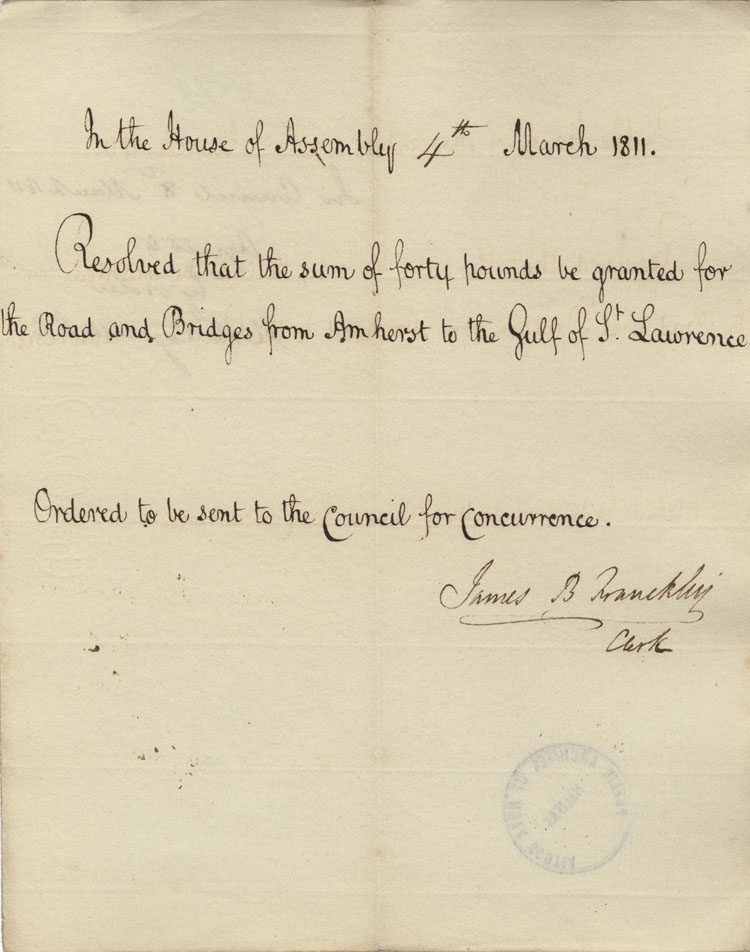 In the House of Assembly 4th March 1811.
Resolved that the sum of forty pounds be granted for
the Road and Bridges from Amherst to the Gulf of St. Lawrence
Ordered to be sent to the Council for Concurrence.
James B Franckliyn
Clerk
PUBLIC ARCHIVES OF NOVA SCOTIA
HALIFAX